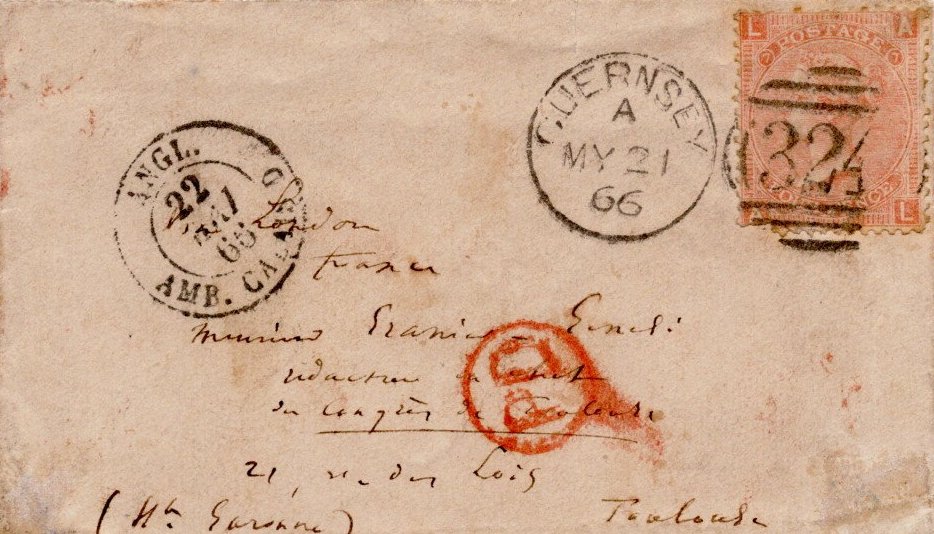 L A
7 POSTAGE 7
GUERNSEY
A
MY 21
66
324
A L
ANGL.
22
MAI
66
AMB. CALAIS G
London
France
Monsieur
rédacteur en chef
du congrès de Toulouse
21, rue des Lois
(Hte Garonne) Toulouse
PD